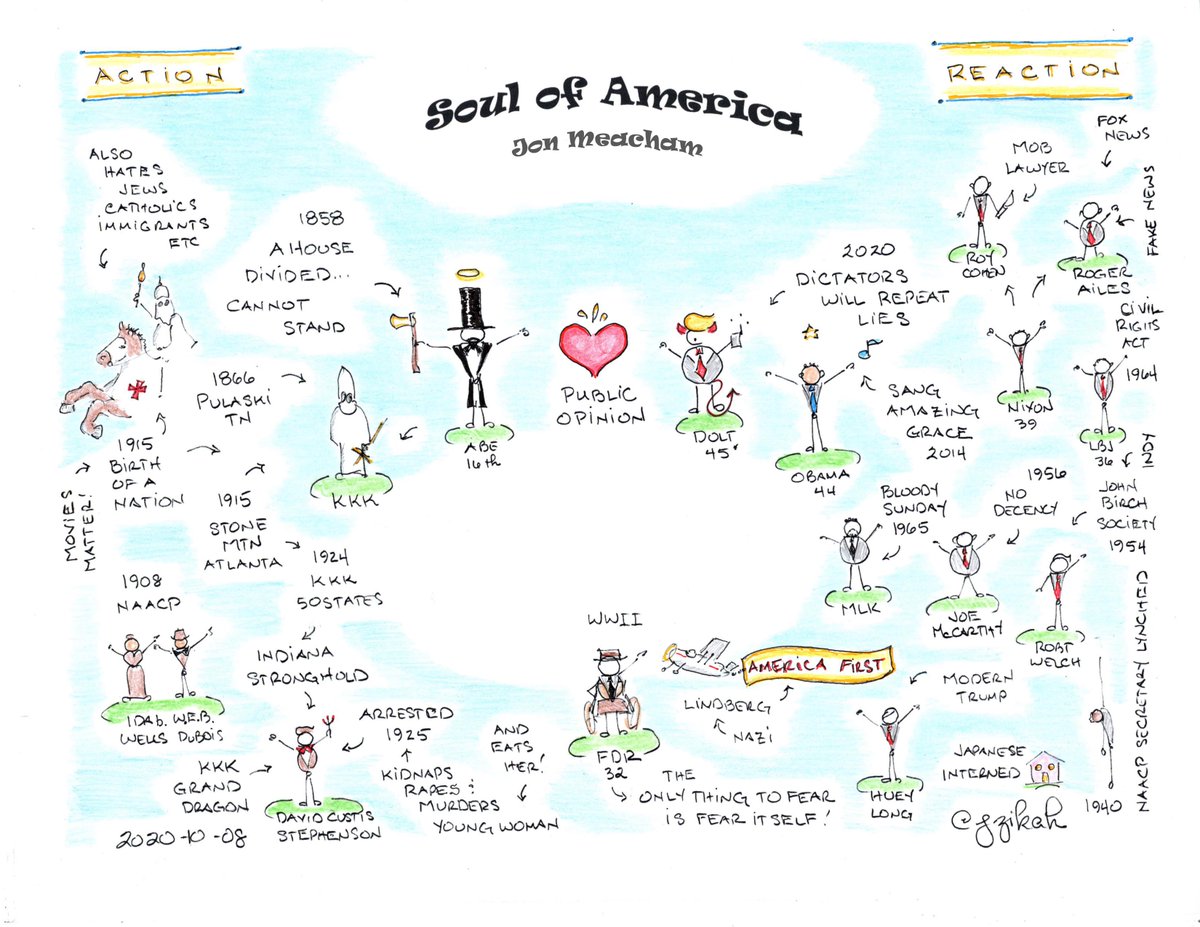 ACTION
REACTION
Soul of America
Jon Meacham
ALSO
HATES
JEWS
CATHOLICS
IMMIGRANTS
ETC
1858
A HOUSE
DIVIDED...
CANNOT
STAND
1866
PULASKI
TN
1915
BIRTH
OF A
NATION
MOVIES
MATTER!
1915
STONE
MTN
ATLANTA
KKK
ABE
16th
PUBLIC
OPINION
DOLT
45
2020
DICTATORS
WILL REPEAT
LIES
OBAMA
44
SANG
AMAZING
GRACE
2014
MOB
LAWYER
ROY
COHEN
FOX
NEWS
FAKE NEWS
ROGER
AILES
NIXON
39
CIVIL
RIGTS
ACT
1964
LBJ
36
INDY
1924
KKK
50STATES
1908
NAACP
IDA b. W.E.B.
WELLS DUBOIS
INDIANA
STRONGHOLD
KKK
GRAND
DRAGON
DAVID CUSTIS
STEPHENSON
ARRESTED
1925
KIDNAPS
RAPES &
MURDERS
YOUNG WOMAN
AND
EATS
HER!
WWII
FDR
32
THE
ONLY THING TO FEAR
IS FEAR ITSELF!
AMERICA FIRST
LINDBERG
NAZI
BLOODY
SUNDAY
1965
MLK
1956
NO
DECENCY
JOE
McCARTHY
JOHN
BIRCH
SOCIETY
1954
ROBT
WELCH
MODERN
TRUMP
HUEY
LONG
JAPANESE
INTERNED
1940
NAACP SECRETARY LYNCHED
2020-10-08
@gzikah